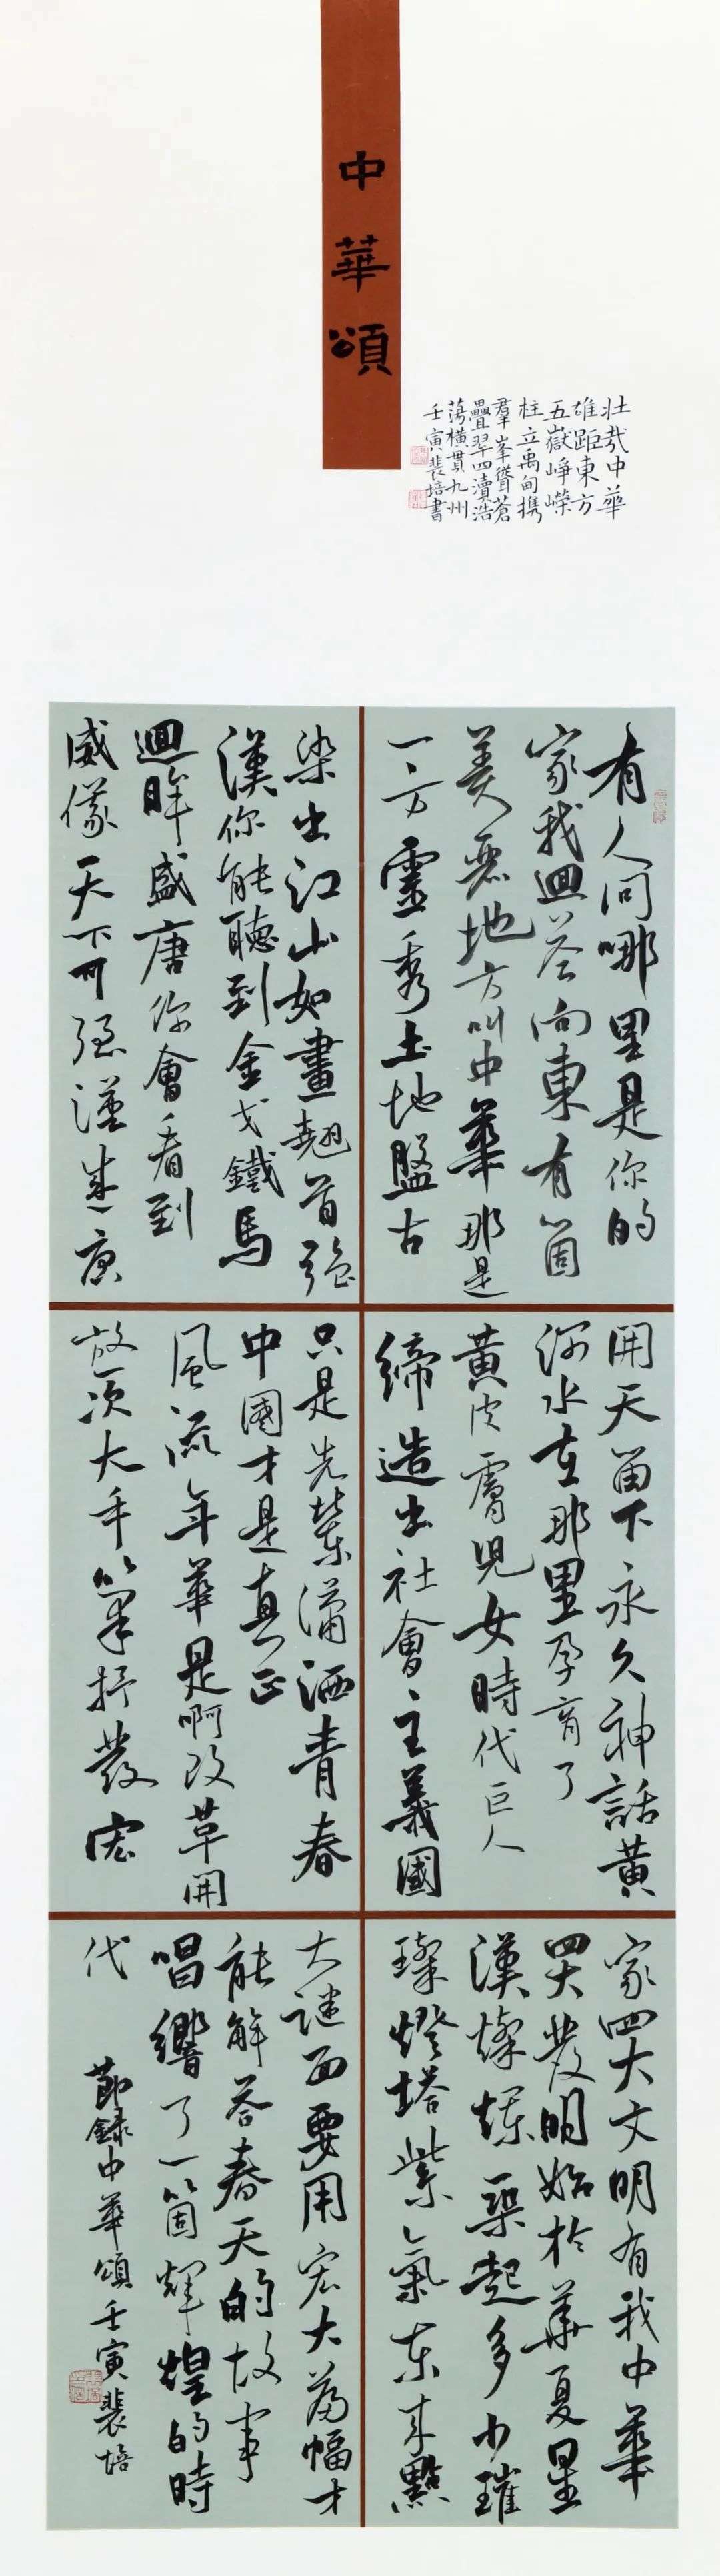 中華頌
壯哉中華
雄距東方
五嶽崢嶸
柱立禹甸攜
羣峯聳蒼
疊翠四瀆浩
蕩橫貫九州
壬寅裴培書
有人問哪里是你的
家我迴答向東有箇
美麗地方叫中華那是
一方靈秀土地盤古
開天留下永久神話黄
河水在那里孕育了
黄皮膚兒女時代巨人
締造出社會主義國
家四大文明有我中華
四大發明始於華夏星
漢燦爛架起多少璀
璨燈塔紫氣東來點
染出江山如畫翹首強
漢你能聽到金戈鐵馬
迴眸盛唐你會看到
威儀天下可強漢盛唐
只是先輩瀟洒青春
中國才是真正
風流年華是啊改革開
放一次大手筆抒發宏
大謎面要用宏大篇幅才
能解答春天的故事
唱響了一箇輝煌的時
代
節錄中華頌壬寅裴培